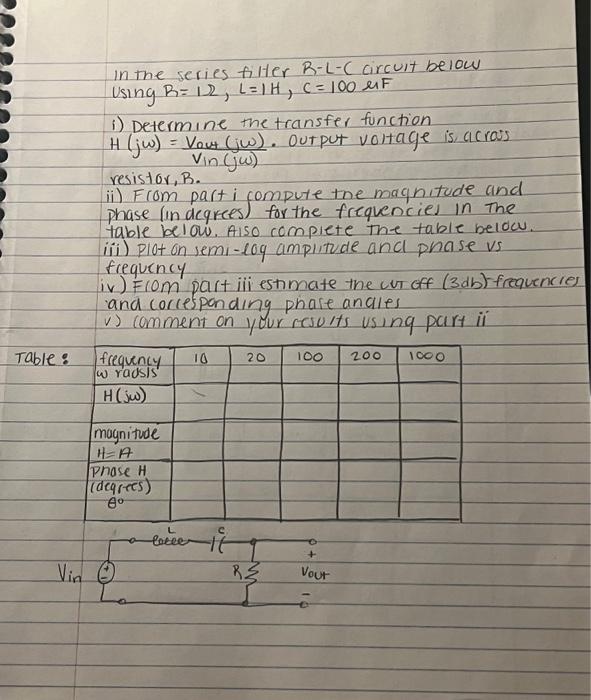 In the series filter R-L-C circuit below
Using R= 1Ω, L=1H, C=100 uF
i) Determine the transfer function
H (jω) = Vout (jω). Output voltage is across
Vin (jω)
resistor, R.
ii) From part i compute the magnitude and
phase (in degrees) for the frequencies in The
table below. Also complete the table below.
iii) Plot on semi-log amplitude and phase vs
frequency
iv) From part iii estimate the cut off (3db) frequencies
and corresponding phase angles
v) comment on your results using part ii
Table: frequency ω rads/s 10 20 100 200 1000
H(jω)
magnitude
H=A
Phase H
(degrees)
θ°
L C
+
Vin + - R Vout
-